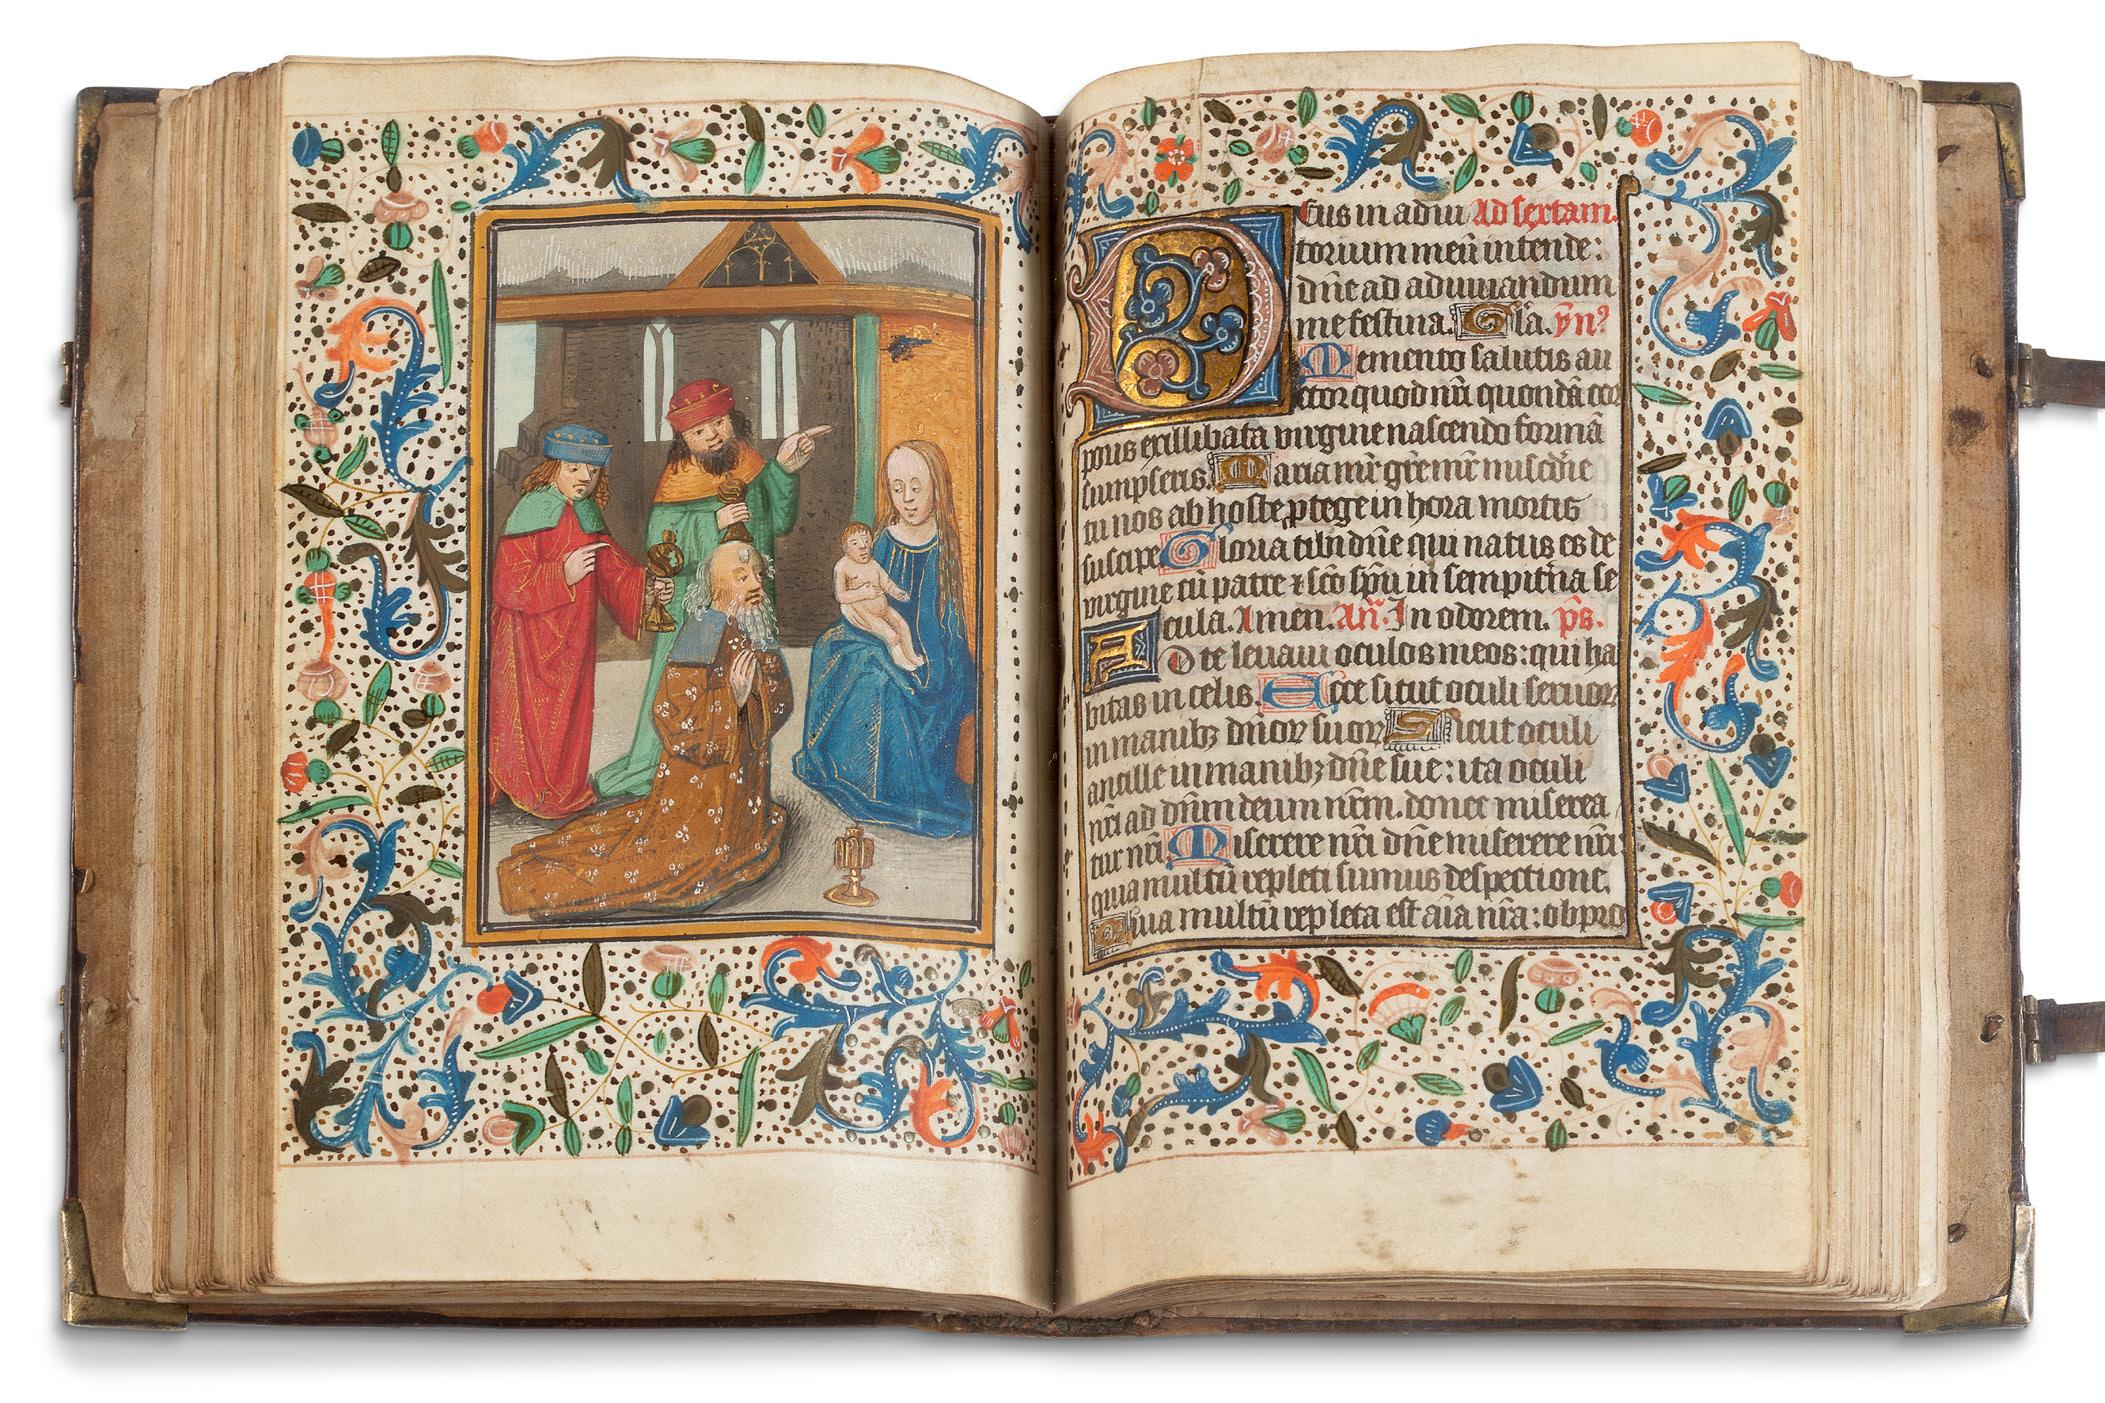 Deus in adiu Ad sextam.
torium meū intende:
dn̄e ad adiuuandum
me festina. Gla. ẏn᷒
Memento salutis au
ctor quod nr̄i quondā cor
poris ex illibata virgine nascendo formā
sumpseris. Maria mr̄ gr̄e mr̄ mīscd̄ie
tu nos ab hoste ꝓtege in hora mortis
suscipe Gloria tibi dn̄e qui natus es de
virgine cū patre ⁊ sc̄o sp̄u in sempit̄na se
cula. Amen. An̄. In odorem. p̄s.
AD te leuaui oculos meos: qui ha
bitas in celis. Ecce sicut oculi seruoꝝ
in manibꝫ dn̄oꝝ suoꝝ Sicut oculi
ancille in manibꝫ dn̄e sue: ita oculi
nr̄i ad dn̄m deum nr̄m. donec miserea
tur nr̄i. Miserere nr̄i dn̄e miserere nr̄i:
quia multū repleti sumus despectione.
Quia multū repleta est aīa nr̄a: obpro